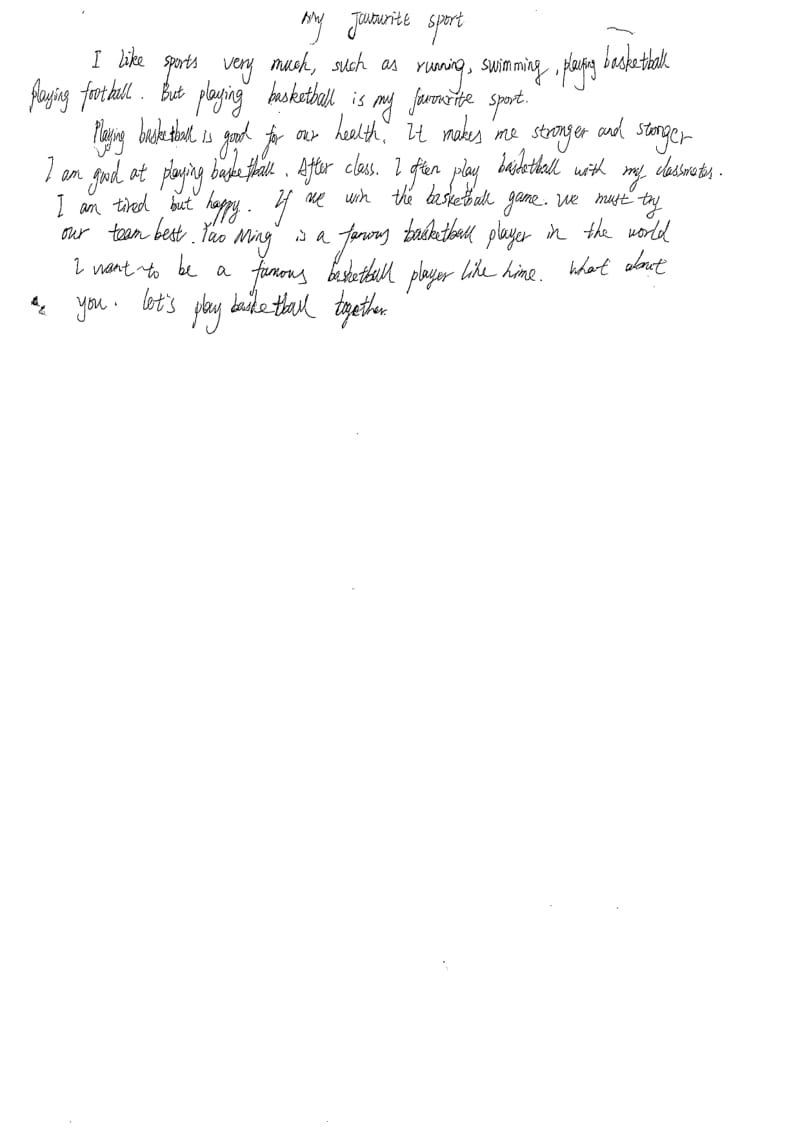 My favourite sport
I like sports very much, such as running, swimming, playing basketball
playing football. But playing basketball is my favourite sport.
Playing basketball is good for our health. It makes me stronger and stonger
I am good at playing basketball. After class. I often play basketball with my classmates.
I am tired but happy. If we win the basketball game. We must try
our team best. Yao Ming is a famous basketball player in the world
I want to be a famous basketball player like hime. What about
you. let's play basketball together.